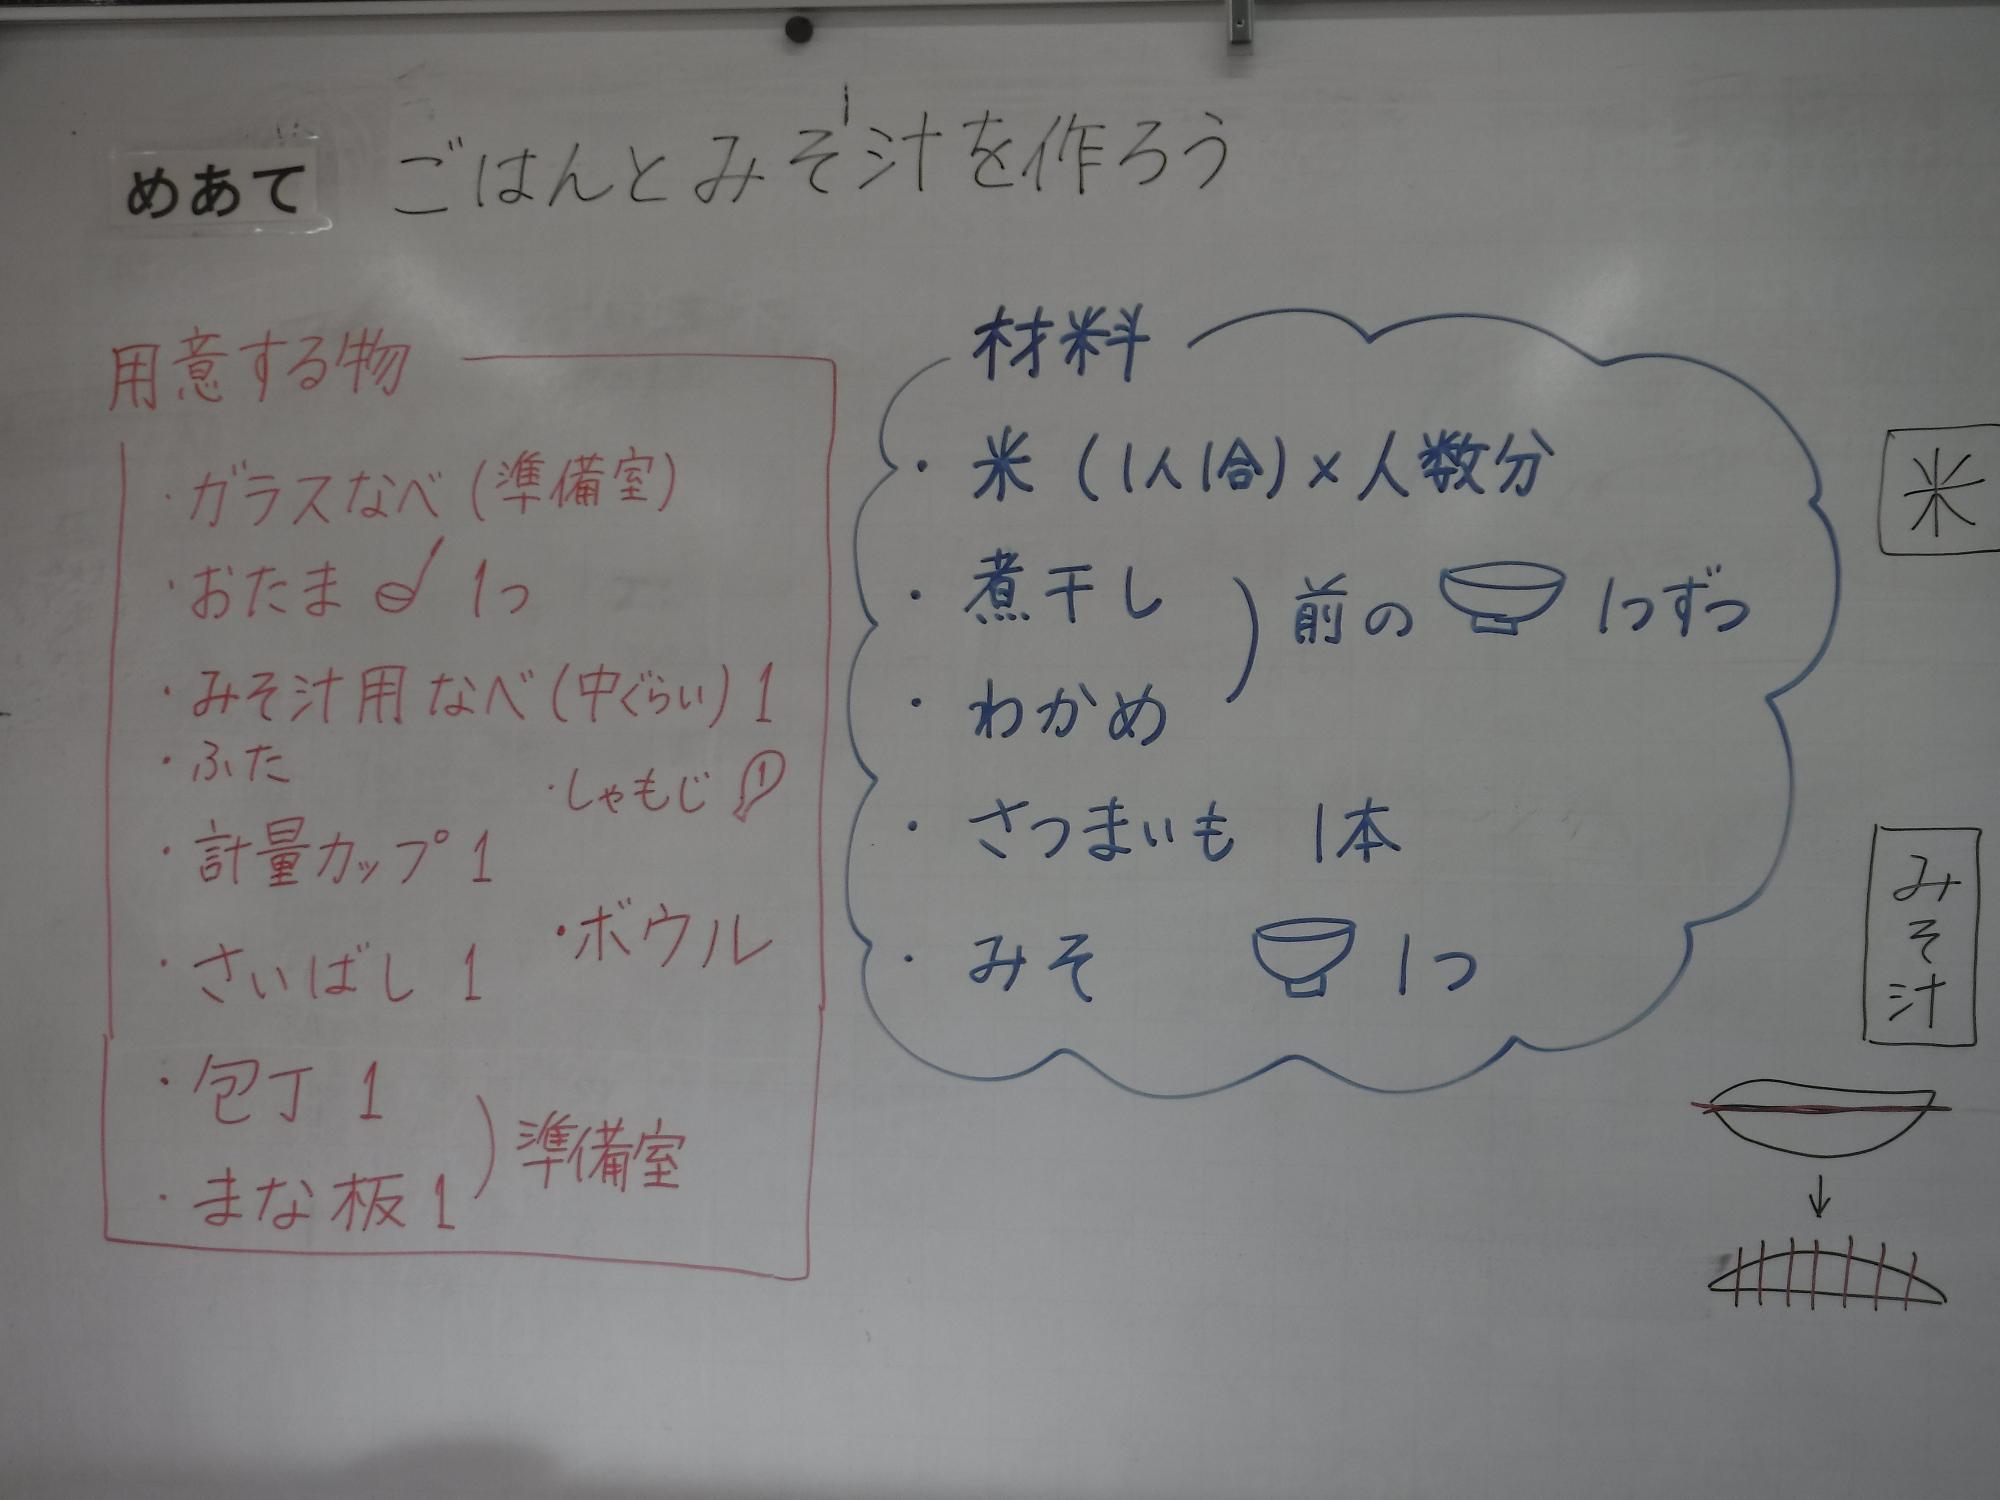 めあて ごはんとみそ汁を作ろう
用意する物
・ガラスなべ(準備室)
・おたま 1つ
・みそ汁用なべ(中ぐらい) 1
・ふた
・しゃもじ 1
・計量カップ 1
・ボウル
・さいばし 1
・包丁 1
・まな板 1
準備室
材料
・米 (1人1合)×人数分
・煮干し
・わかめ
前の 1つずつ
・さつまいも 1本
・みそ 1つ
米
みそ汁